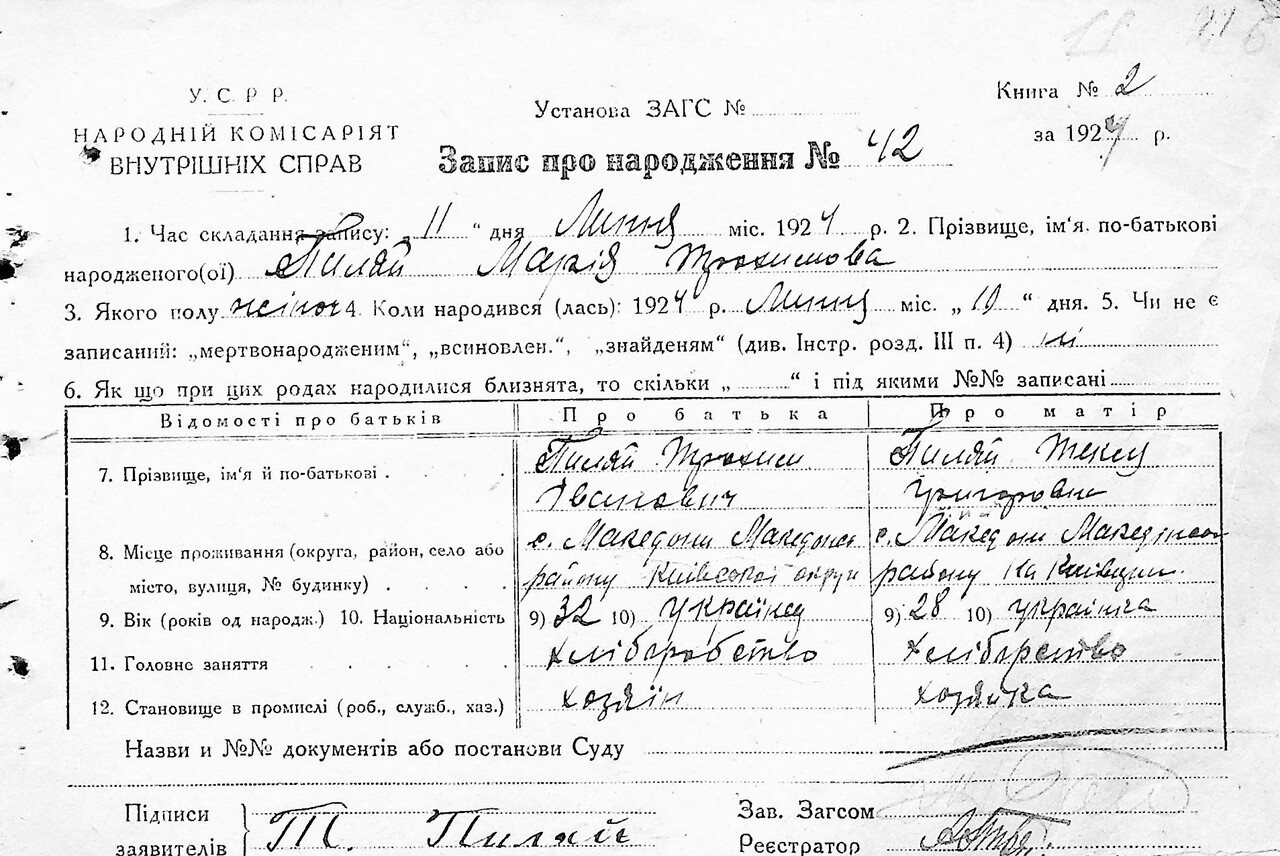 У. С. Р. Р.
НАРОДНІЙ КОМІСАРІЯТ
ВНУТРІШНІХ СПРАВ
Установа ЗАГС №
Книга № 2
за 1924 р.
Запис про народження № 42
1. Час складання запису: „ 11 “ дня Липня міс. 1924 р. 2. Прізвище, ім‘я, по-батькові
народженого(ої) Пиляй Марія Трохимова
3. Якого полу жіноч 4. Коли народився (лась): 1924 р. Липня міс. „ 10 “ дня. 5. Чи не є
записаний: „мертвонародженим“, „всиновлен.“, „знайденям“ (див. Інстр. розд. III п. 4) ні
6. Як що при цих родах народилися близнята, то скільки „ “ і під якими №№ записані
Відомості про батьків Про батька Про матір
7. Прізвище, ім‘я й по-батькові . Пиляй Трохим Іванович Пиляй Григоровна
8. Місце проживання (округа, район, село або місто, вулиця, № будинку) с. Македони району Київської округи с. Македони району на Київщині
9. Вік (років од народж.) 10. Національність 9) 32 10) українец 9) 28 10) українка
11. Головне заняття хліборобство хліборство
12. Становище в промислі (роб., служб., хаз.) хозяїн хозяйка
Назви и №№ документів або постанови Суду
Підписи
заявителів Т. Пиляй
Зав. Загсом
Реєстратор